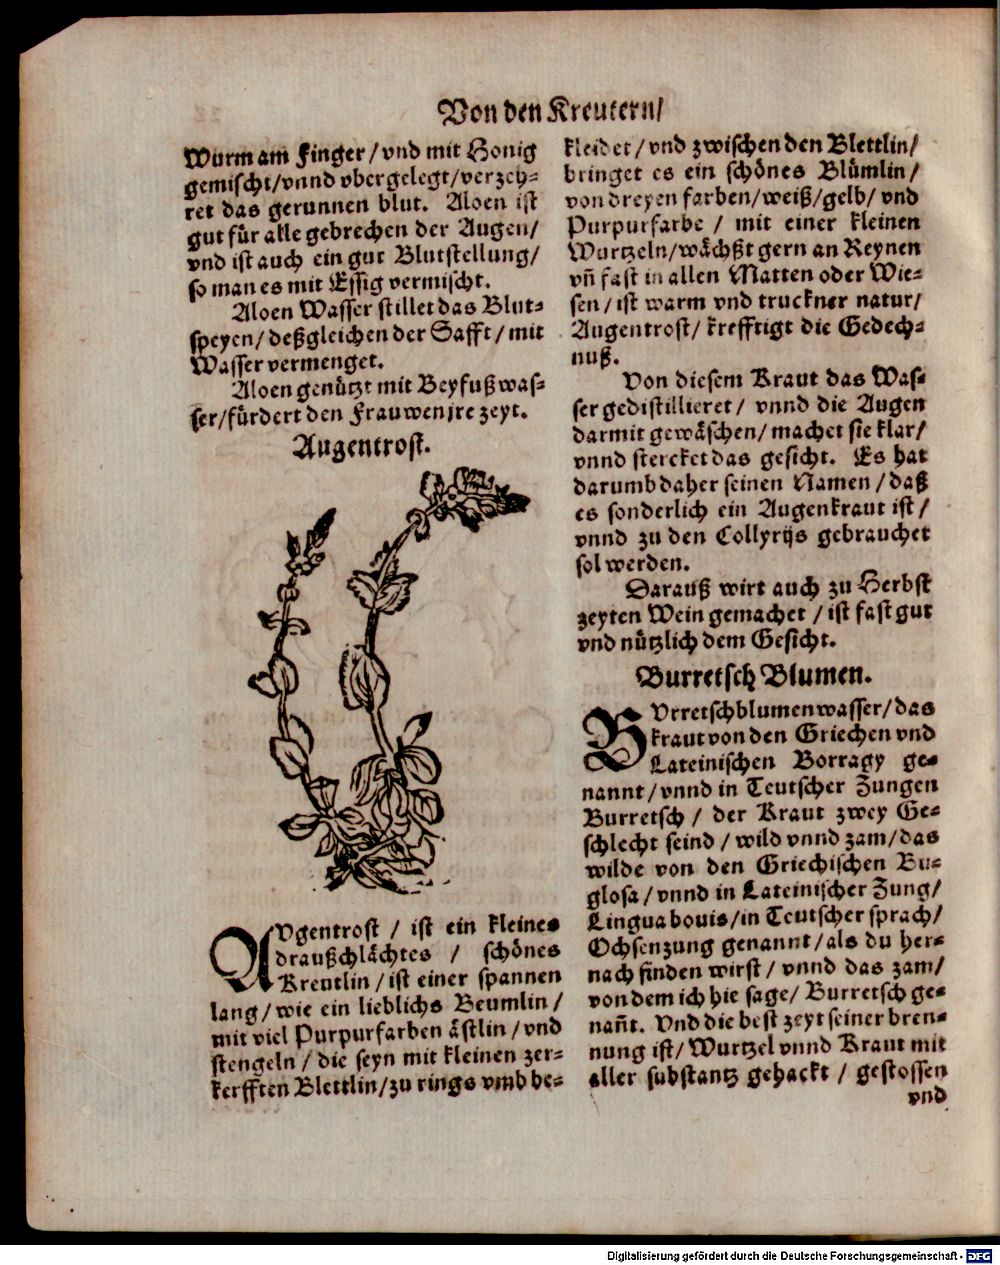 Von den Kreutern/
Wurm am Finger/vnd mit Honig
gemischt/vnnd vbergelegt/verzeh-
ret das gerunnen blut. Aloen ist
gut für alle gebrechen der Augen/
vnd ist auch ein gut Blutstellung/
so man es mit Essig vermischt.
Aloen Wasser stillet das Blut-
speyen/deßgleichen der Safft/mit
Wasser vermenget.
Aloen genützt mit Beyfuß was-
ser/fürdert den Frauwen jre zeyt.
Augentrost.
AVgentrost / ist ein kleines
draußchlächtes / schönes
Kreutlin/ist einer spannen
lang/wie ein lieblichs Beumlin/
mit viel Purpurfarben ästlin/vnd
stengeln/die seyn mit kleinen zer-
kerfften Blettlin/zu rings vmb be-
kleidet/vnd zwischen den Blettlin/
bringet es ein schönes Blümlin/
von dreyen farben/weiß/gelb/ vnd
Purpurfarbe / mit einer kleinen
Wurtzeln/wächßt gern an Reynen
vñ fast in allen Matten oder Wie-
sen/ist warm vnd truckner natur/
Augentrost/ krefftigt die Gedech-
nuß.
Von diesem Kraut das Was-
ser gedistillieret/ vnnd die Augen
darmit gewäschen/machet sie klar/
vnnd stercket das gesicht. Es hat
darumb daher seinen Namen/daß
es sonderlich ein Augenkraut ist/
vnnd zu den Collyrijs gebrauchet
sol werden.
Darauß wirt auch zu Herbst
zeyten Wein gemachet/ist fast gut
vnd nützlich dem Gesicht.
Burretsch Blumen.
BVrretschblumenwasser/das
kraut von den Griechen vnd
Lateinischen Borragy ge-
nannt/vnnd in Teutscher Zungen
Burretsch / der Kraut zwey Ge-
schlecht seind/wild vnnd zam/das
wilde von den Griechischen Bu-
glosa/vnnd in Lateinischer Zung/
Lingua bouis/in Teutscher sprach/
Ochsenzung genannt/als du her-
nach finden wirst/vnnd das zam/
von dem ich hie sage/Burretsch ge-
nañt. Vnd die best zeyt seiner bren-
nung ist/Wurtzel vnnd Kraut mit
aller substantz gehackt / gestossen
vnd
Digitalisierung gefördert durch die Deutsche Forschungsgemeinschaft - DFG